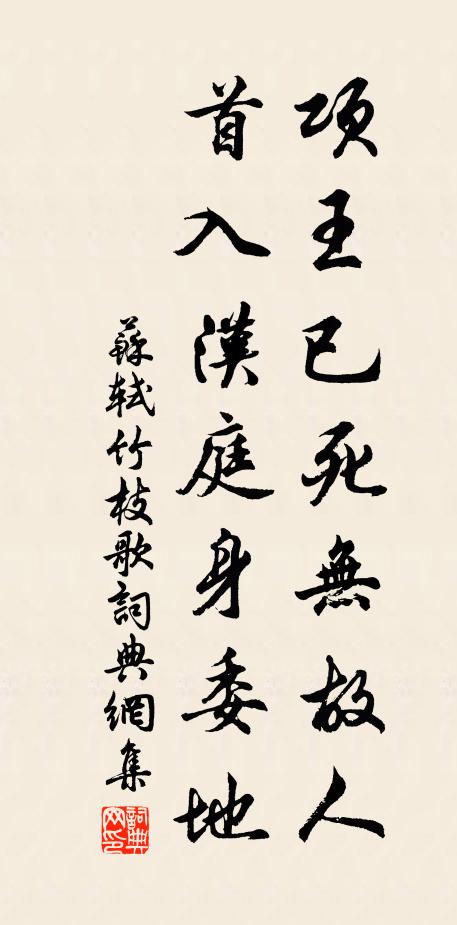 項王已死無故人
首入漢庭身委地
蘇軾竹枝歌詞典網集
詞典网印